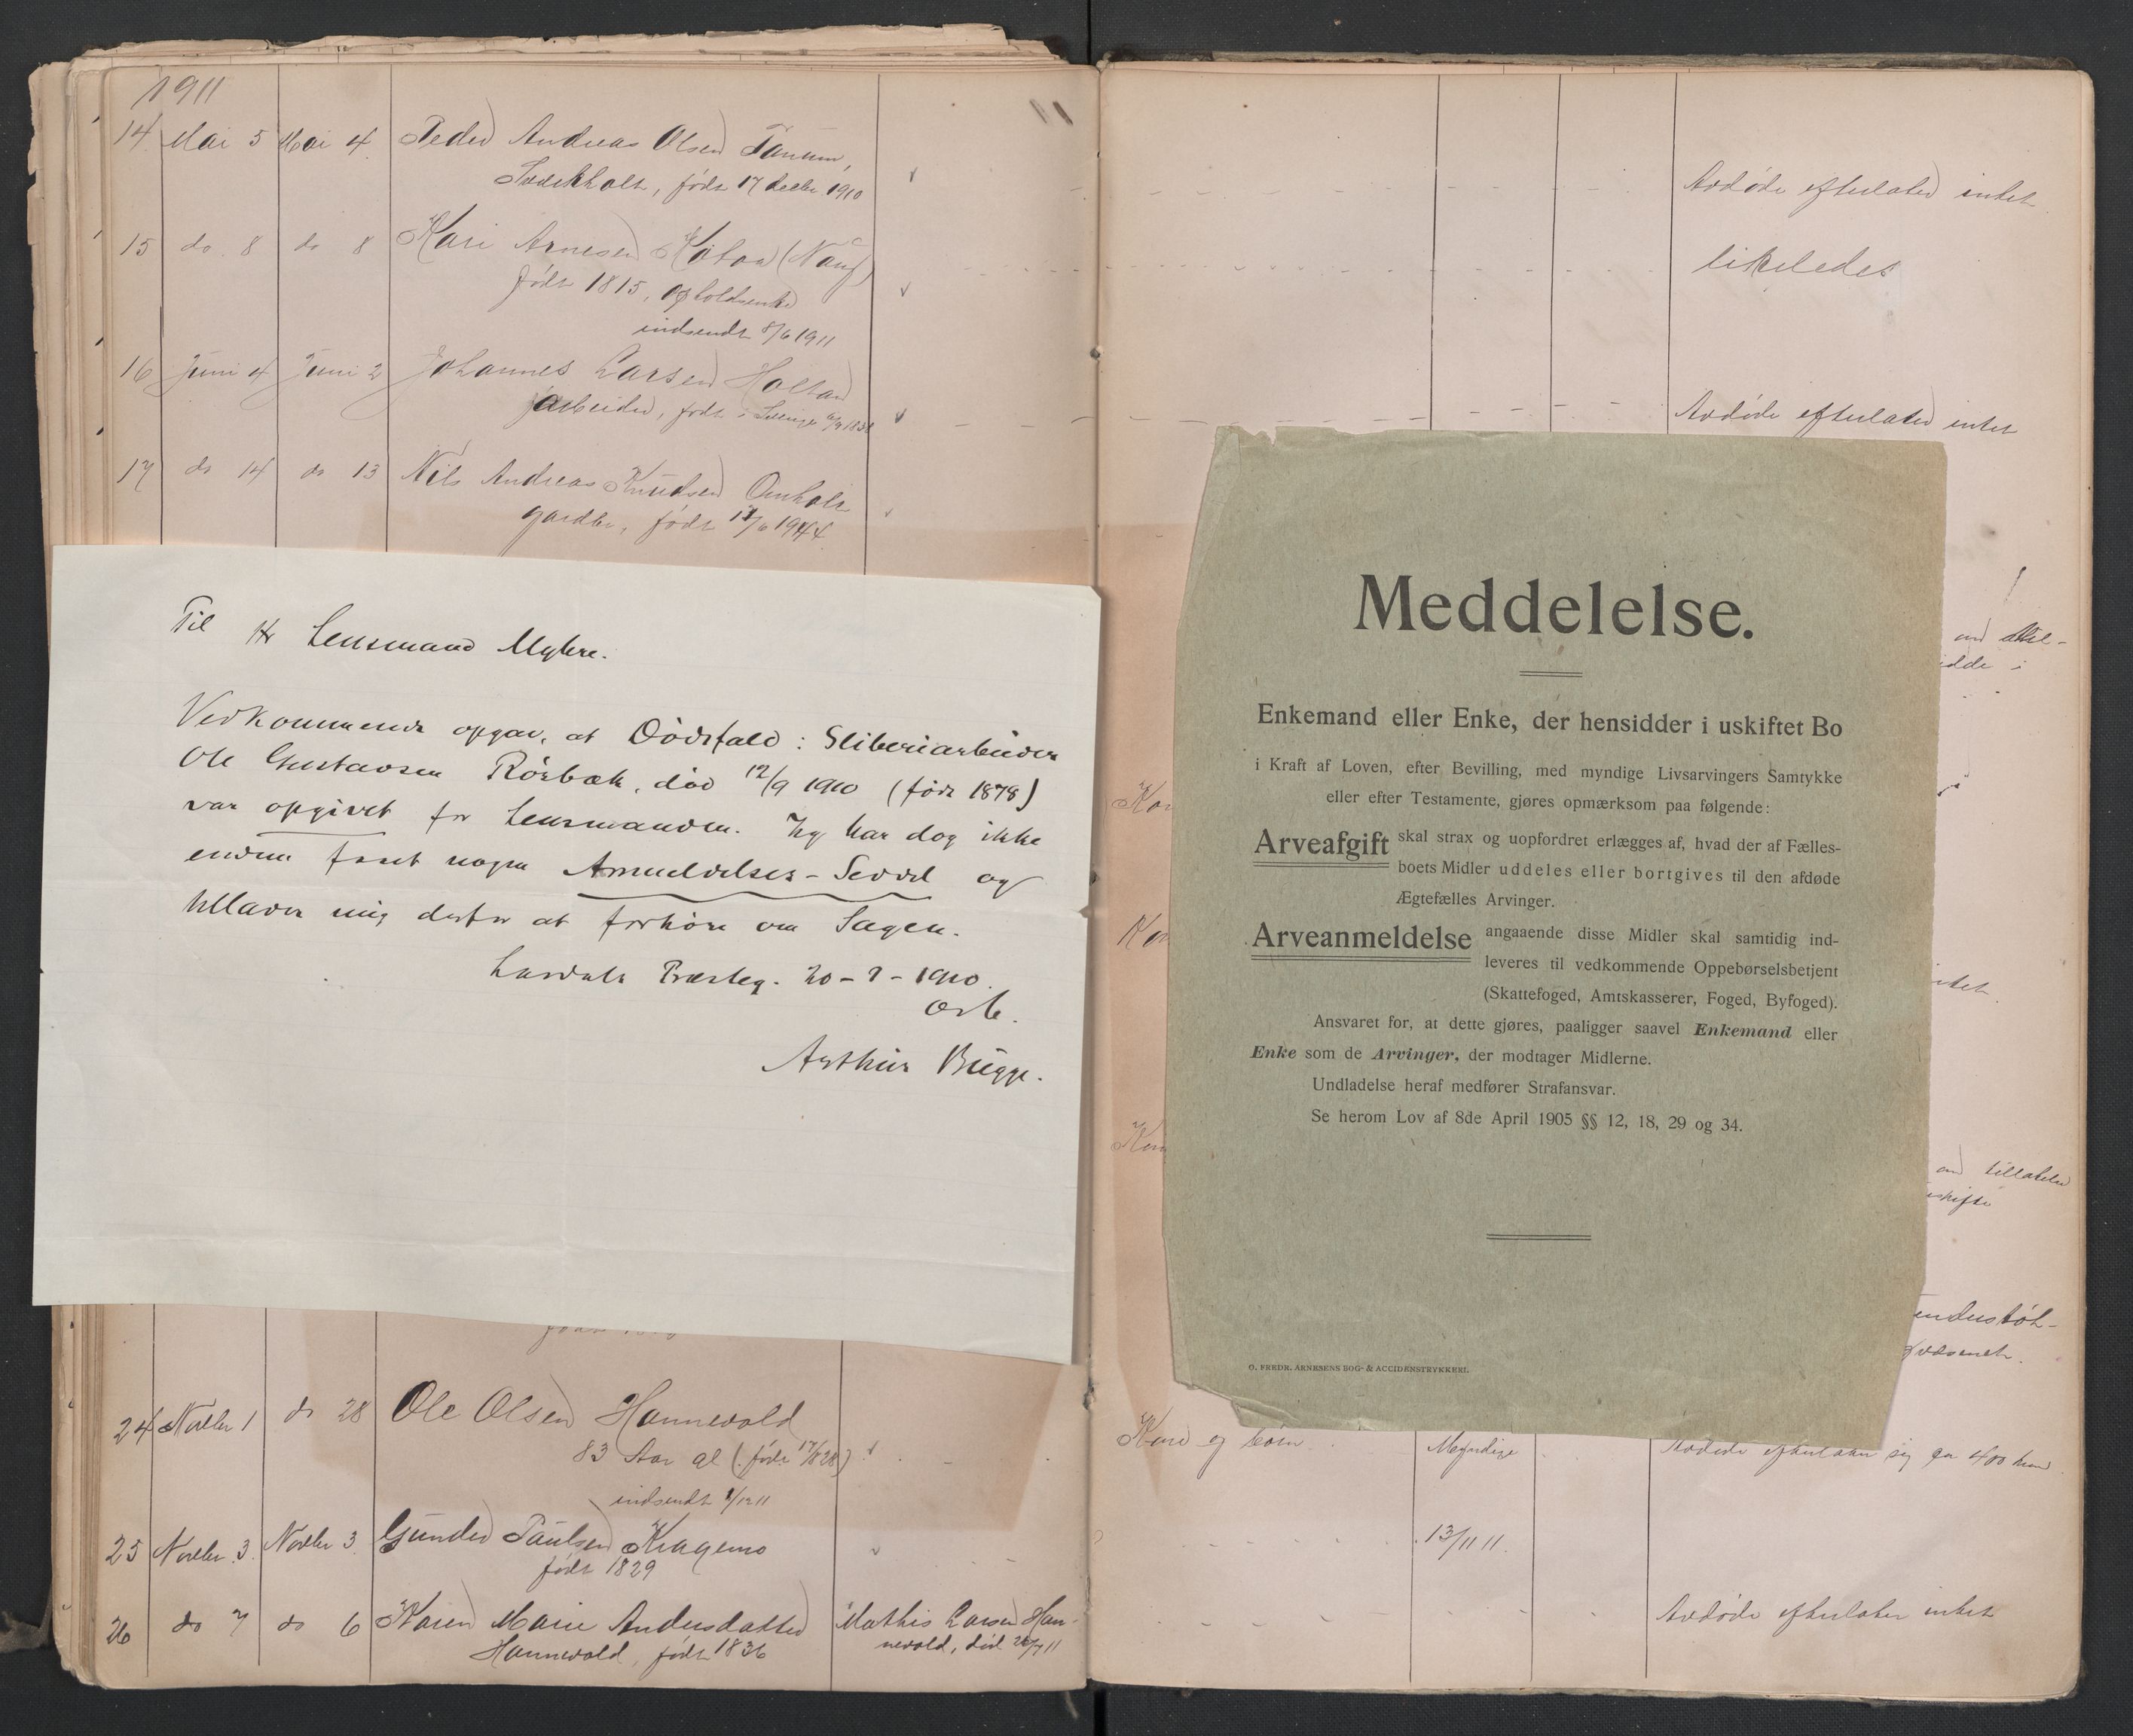 1911
11
14 Mai 5 Mai 4 Peder Andreas Olsen Tanum,
født 17 decbr 1910
Avdøde efterlater intet
15 do 8 do 8 Kari Arnesen
født 1815,
indsendt 8/6 1911
likeledes
16 Juni 4 Juni 2 Johannes Larsen Holtan
arbeider, født i
Avdøde efterlater intet
17 do 14 do 13 Nils Andreas Knudsen Omholt
gardbr, født
Til Hr Lensmand Myhre.
Vedkommende opgav, at Dødsfald: Sliberiarbeider
Ole Gustavsen Rörbæk, död 12/9 1910 (födt 1878)
var opgivet for Lensmanden. Jeg har dog ikke
endnu faaet nogen Anmeldelses-Seddel og
tillader mig derfor at forhöre om Sagen.
Lardals Præsteg. 20-9-1910.
Arthur Bugge.
Meddelelse.
Enkemand eller Enke, der hensidder i uskiftet Bo
i Kraft af Loven, efter Bevilling, med myndige Livsarvingers Samtykke
eller efter Testamente, gjøres opmærksom paa følgende:
Arveafgift skal strax og uopfordret erlægges af, hvad der af Fælles-
boets Midler uddeles eller bortgives til den afdøde
Ægtefælles Arvinger.
Arveanmeldelse angaaende disse Midler skal samtidig ind-
leveres til vedkommende Oppebørselsbetjent
(Skattefoged, Amtskasserer, Foged, Byfoged).
Ansvaret for, at dette gjøres, paaligger saavel Enkemand eller
Enke som de Arvinger, der modtager Midlerne.
Undladelse heraf medfører Strafansvar.
Se herom Lov af 8de April 1905 §§ 12, 18, 29 og 34.
O. FREDR. ARNESENS BOG- & ACCIDENSTRYKKERI.
24 Novbr 1 do 28 Ole Olsen Hannevold
83 Aar gl (født 17/8 28)
indsendt 1/12 11
Kone og børn Myndige Avdøde efterlater sig ca 400 kr
25 Novbr 3. Novbr 3 Gunder Paulsen Kragemo
født 1829
13/11 11.
26 do 7 do 6 Karen Marie Andersdatter
Hannevold, født 1836
Mathis Larsen Han-
nevold, død
Avdøde efterlater intet